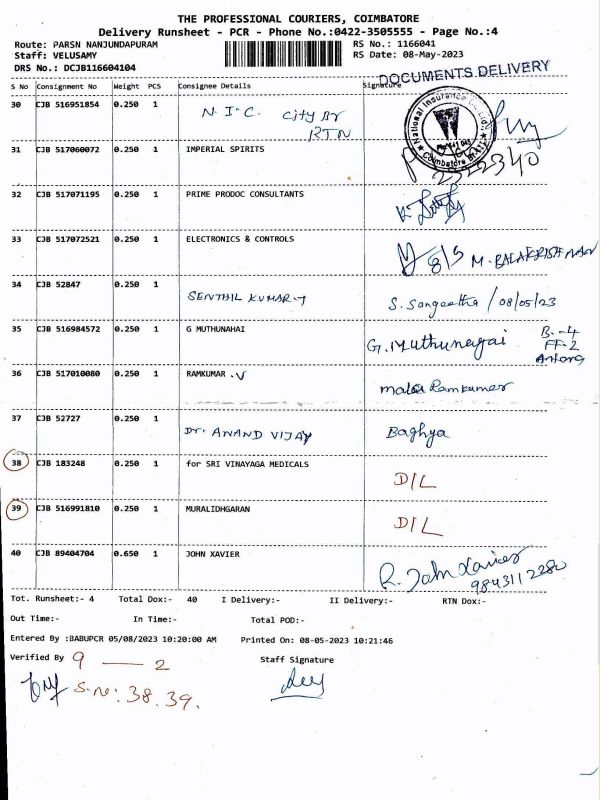 THE PROFESSIONAL COURIERS, COIMBATORE
Delivery Runsheet - PCR - Phone No.:0422-3505555 - Page No.:4
Route: PARSN NANJUNDAPURAM RS No.: 1166041
Staff: VELUSAMY RS Date: 08-May-2023
DRS No.: DCJB116604104
DOCUMENTS DELIVERY
S No Consignment No Weight PCS Consignee Details Signature
30 CJB 516951854 0.250 1 N.I.C. City Br
RTN
National Insurance Co. Ltd.
Coimbatore
31 CJB 517060072 0.250 1 IMPERIAL SPIRITS 2322340
32 CJB 517071195 0.250 1 PRIME PRODOC CONSULTANTS
33 CJB 517072521 0.250 1 ELECTRONICS & CONTROLS 8/5 M. BALAKRISHNAN
34 CJB 52847 0.250 1 SENTHIL KUMAR.T S. Sangeetha / 08/05/23
35 CJB 516984572 0.250 1 G MUTHUNAHAI G. Muthunagai B-4
FF-2
36 CJB 517010080 0.250 1 RAMKUMAR .V Mala Ramkumar
37 CJB 52727 0.250 1 Dr. ANAND VIJAY Baghya
38 CJB 183248 0.250 1 for SRI VINAYAGA MEDICALS D/L
39 CJB 516991810 0.250 1 MURALIDHGARAN D/L
40 CJB 89404704 0.650 1 JOHN XAVIER R. John Xavier
9843112280
Tot. Runsheet:- 4 Total Dox:- 40 I Delivery:- II Delivery:- RTN Dox:-
Out Time:- In Time:- Total POD:-
Entered By :BABUPCR 05/08/2023 10:20:00 AM Printed On: 08-05-2023 10:21:46
Verified By 9 — 2 Staff Signature
S.no: 38.39.